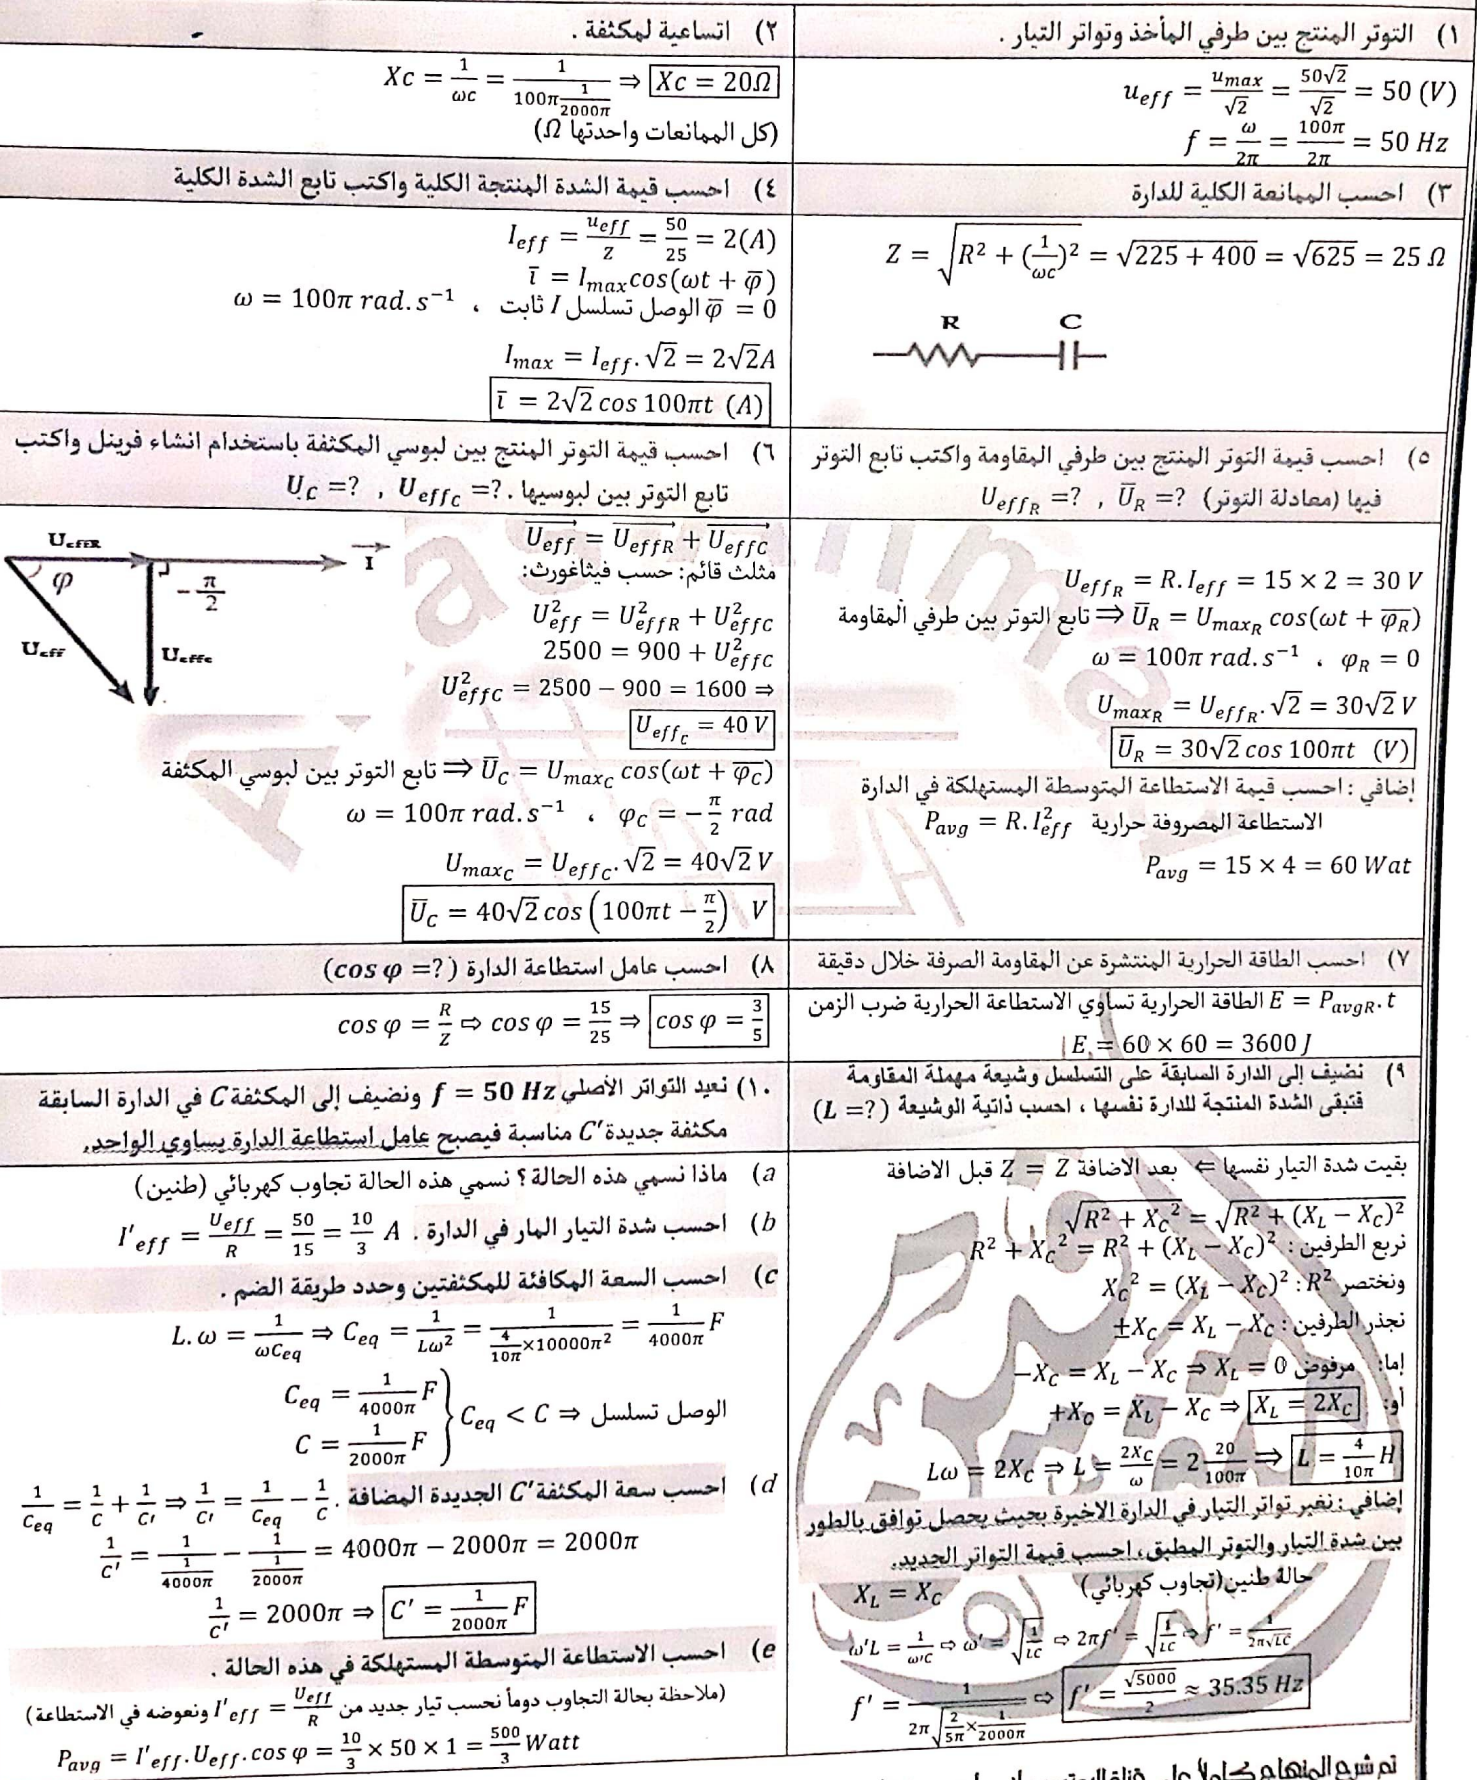 ١) التوتر المنتج بين طرفي المأخذ وتواتر التيار .
u_eff = u_max/√2 = 50√2/√2 = 50 (V)
f = ω/2π = 100π/2π = 50 Hz
٢) اتساعية لمكثفة .
Xc = 1/ωc = 1/(100π 1/2000π) ⇒ Xc = 20Ω
(كل الممانعات واحدتها Ω)
٣) احسب الممانعة الكلية للدارة
Z = √(R² + (1/ωc)²) = √(225 + 400) = √625 = 25 Ω
R C
٤) احسب قيمة الشدة المنتجة الكلية واكتب تابع الشدة الكلية
I_eff = u_eff/Z = 50/25 = 2(A)
ī = I_max cos(ωt + φ̄)
φ̄ = 0 الوصل تسلسل I ثابت ، ω = 100π rad.s⁻¹
I_max = I_eff.√2 = 2√2A
ī = 2√2 cos 100πt (A)
٥) احسب قيمة التوتر المنتج بين طرفي المقاومة واكتب تابع التوتر
فيها (معادلة التوتر) U_effR =? , Ū_R =?
U_effR = R.I_eff = 15 × 2 = 30 V
Ū_R = U_maxR cos(ωt + φ̄_R) ⇐ تابع التوتر بين طرفي المقاومة
ω = 100π rad.s⁻¹ ، φ_R = 0
U_maxR = U_effR.√2 = 30√2 V
Ū_R = 30√2 cos 100πt (V)
إضافي : احسب قيمة الاستطاعة المتوسطة المستهلكة في الدارة
الاستطاعة المصروفة حرارية P_avg = R.I²_eff
P_avg = 15 × 4 = 60 Wat
٦) احسب قيمة التوتر المنتج بين لبوسي المكثفة باستخدام انشاء فرينل واكتب
تابع التوتر بين لبوسيها . U_effC =? , U_C =?
U_effR I
φ -π/2
U_eff U_effc
U_eff⃗ = U_effR⃗ + U_effC⃗
مثلث قائم: حسب فيثاغورث:
U²_eff = U²_effR + U²_effC
2500 = 900 + U²_effC
U²_effC = 2500 − 900 = 1600 ⇒
U_effC = 40 V
Ū_C = U_maxC cos(ωt + φ̄_C) ⇐ تابع التوتر بين لبوسي المكثفة
ω = 100π rad.s⁻¹ ، φ_C = −π/2 rad
U_maxC = U_effC.√2 = 40√2 V
Ū_C = 40√2 cos (100πt − π/2) V
٧) احسب الطاقة الحرارية المنتشرة عن المقاومة الصرفة خلال دقيقة
E = P_avgR.t الطاقة الحرارية تساوي الاستطاعة الحرارية ضرب الزمن
E = 60 × 60 = 3600 J
٨) احسب عامل استطاعة الدارة (cos φ =?)
cos φ = R/Z ⇒ cos φ = 15/25 ⇒ cos φ = 3/5
٩) نضيف إلى الدارة السابقة على التسلسل وشيعة مهملة المقاومة
فتبقى الشدة المنتجة للدارة نفسها ، احسب ذاتية الوشيعة (L =?)
بقيت شدة التيار نفسها ⇐ بعد الاضافة Z = Z قبل الاضافة
√(R² + X_C²) = √(R² + (X_L − X_C)²)
نربع الطرفين : R² + X_C² = R² + (X_L − X_C)²
ونختصر R² : X_C² = (X_L − X_C)²
نجذر الطرفين : ±X_C = X_L − X_C
إما: −X_C = X_L − X_C ⇒ X_L = 0 مرفوض
أو: +X_C = X_L − X_C ⇒ X_L = 2X_C
Lω = 2X_C ⇒ L = 2X_C/ω = 2 20/100π ⇒ L = 4/10π H
إضافي : نغير تواتر التيار في الدارة الاخيرة بحيث يحصل توافق بالطور
بين شدة التيار والتوتر المطبق، احسب قيمة التواتر الجديد.
حالة طنين(تجاوب كهربائي) X_L = X_C
ω'L = 1/ω'C ⇒ ω' = √(1/LC) ⇒ 2πf' = √(1/LC) ⇒ f' = 1/2π√LC
f' = 1/(2π√(2/5π × 1/2000π)) ⇒ f' = √5000/2 ≈ 35.35 Hz
١٠) نعيد التواتر الأصلي f = 50 Hz ونضيف إلى المكثفة C في الدارة السابقة
مكثفة جديدة C' مناسبة فيصبح عامل استطاعة الدارة يساوي الواحد.
a) ماذا نسمي هذه الحالة ؟ نسمي هذه الحالة تجاوب كهربائي (طنين)
b) احسب شدة التيار المار في الدارة . I'_eff = U_eff/R = 50/15 = 10/3 A
c) احسب السعة المكافئة للمكثفتين وحدد طريقة الضم .
L.ω = 1/ωC_eq ⇒ C_eq = 1/Lω² = 1/(4/10π ×10000π²) = 1/4000π F
C_eq = 1/4000π F
C = 1/2000π F } C_eq < C ⇒ الوصل تسلسل
d) احسب سعة المكثفة C' الجديدة المضافة . 1/C_eq = 1/C + 1/C' ⇒ 1/C' = 1/C_eq − 1/C
1/C' = 1/(1/4000π) − 1/(1/2000π) = 4000π − 2000π = 2000π
1/C' = 2000π ⇒ C' = 1/2000π F
e) احسب الاستطاعة المتوسطة المستهلكة في هذه الحالة .
(ملاحظة بحالة التجاوب دوماً نحسب تيار جديد من I'_eff = U_eff/R ونعوضه في الاستطاعة)
P_avg = I'_eff.U_eff.cos φ = 10/3 × 50 × 1 = 500/3 Watt
تم شرح المنهاج كاملاً على قناة